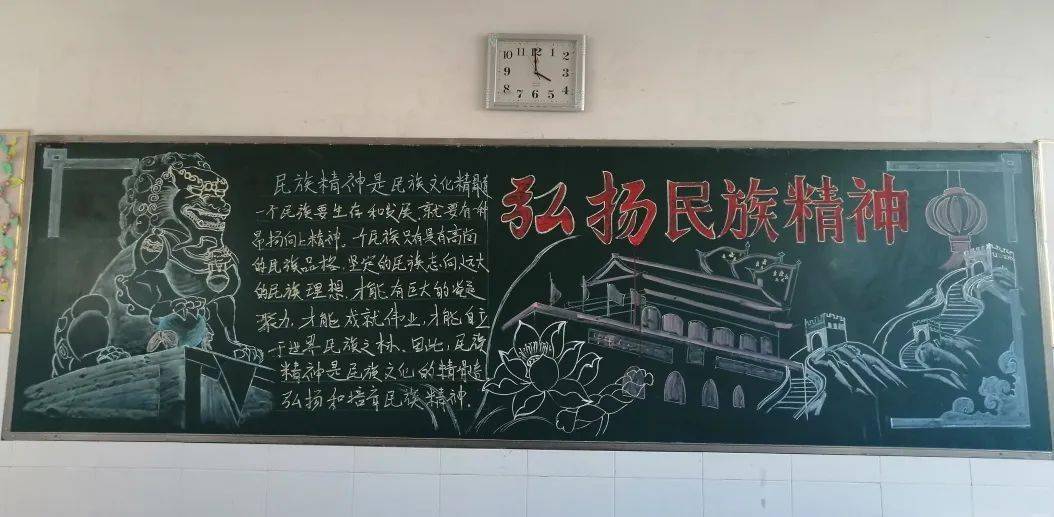 民族精神是民族文化精髓
一个民族要生存和发展,就要有种
昂扬向上精神。一个民族只有具有高尚
的民族品格,坚定的民族志向,远大
的民族理想,才能有巨大的凝
聚力,才能成就伟业,才能自立
于世界民族之林。因此,民族
精神是民族文化的精髓
弘扬和培育民族精神。
弘扬民族精神
10 11 12 1 2
9 3
8 7 6 5 4